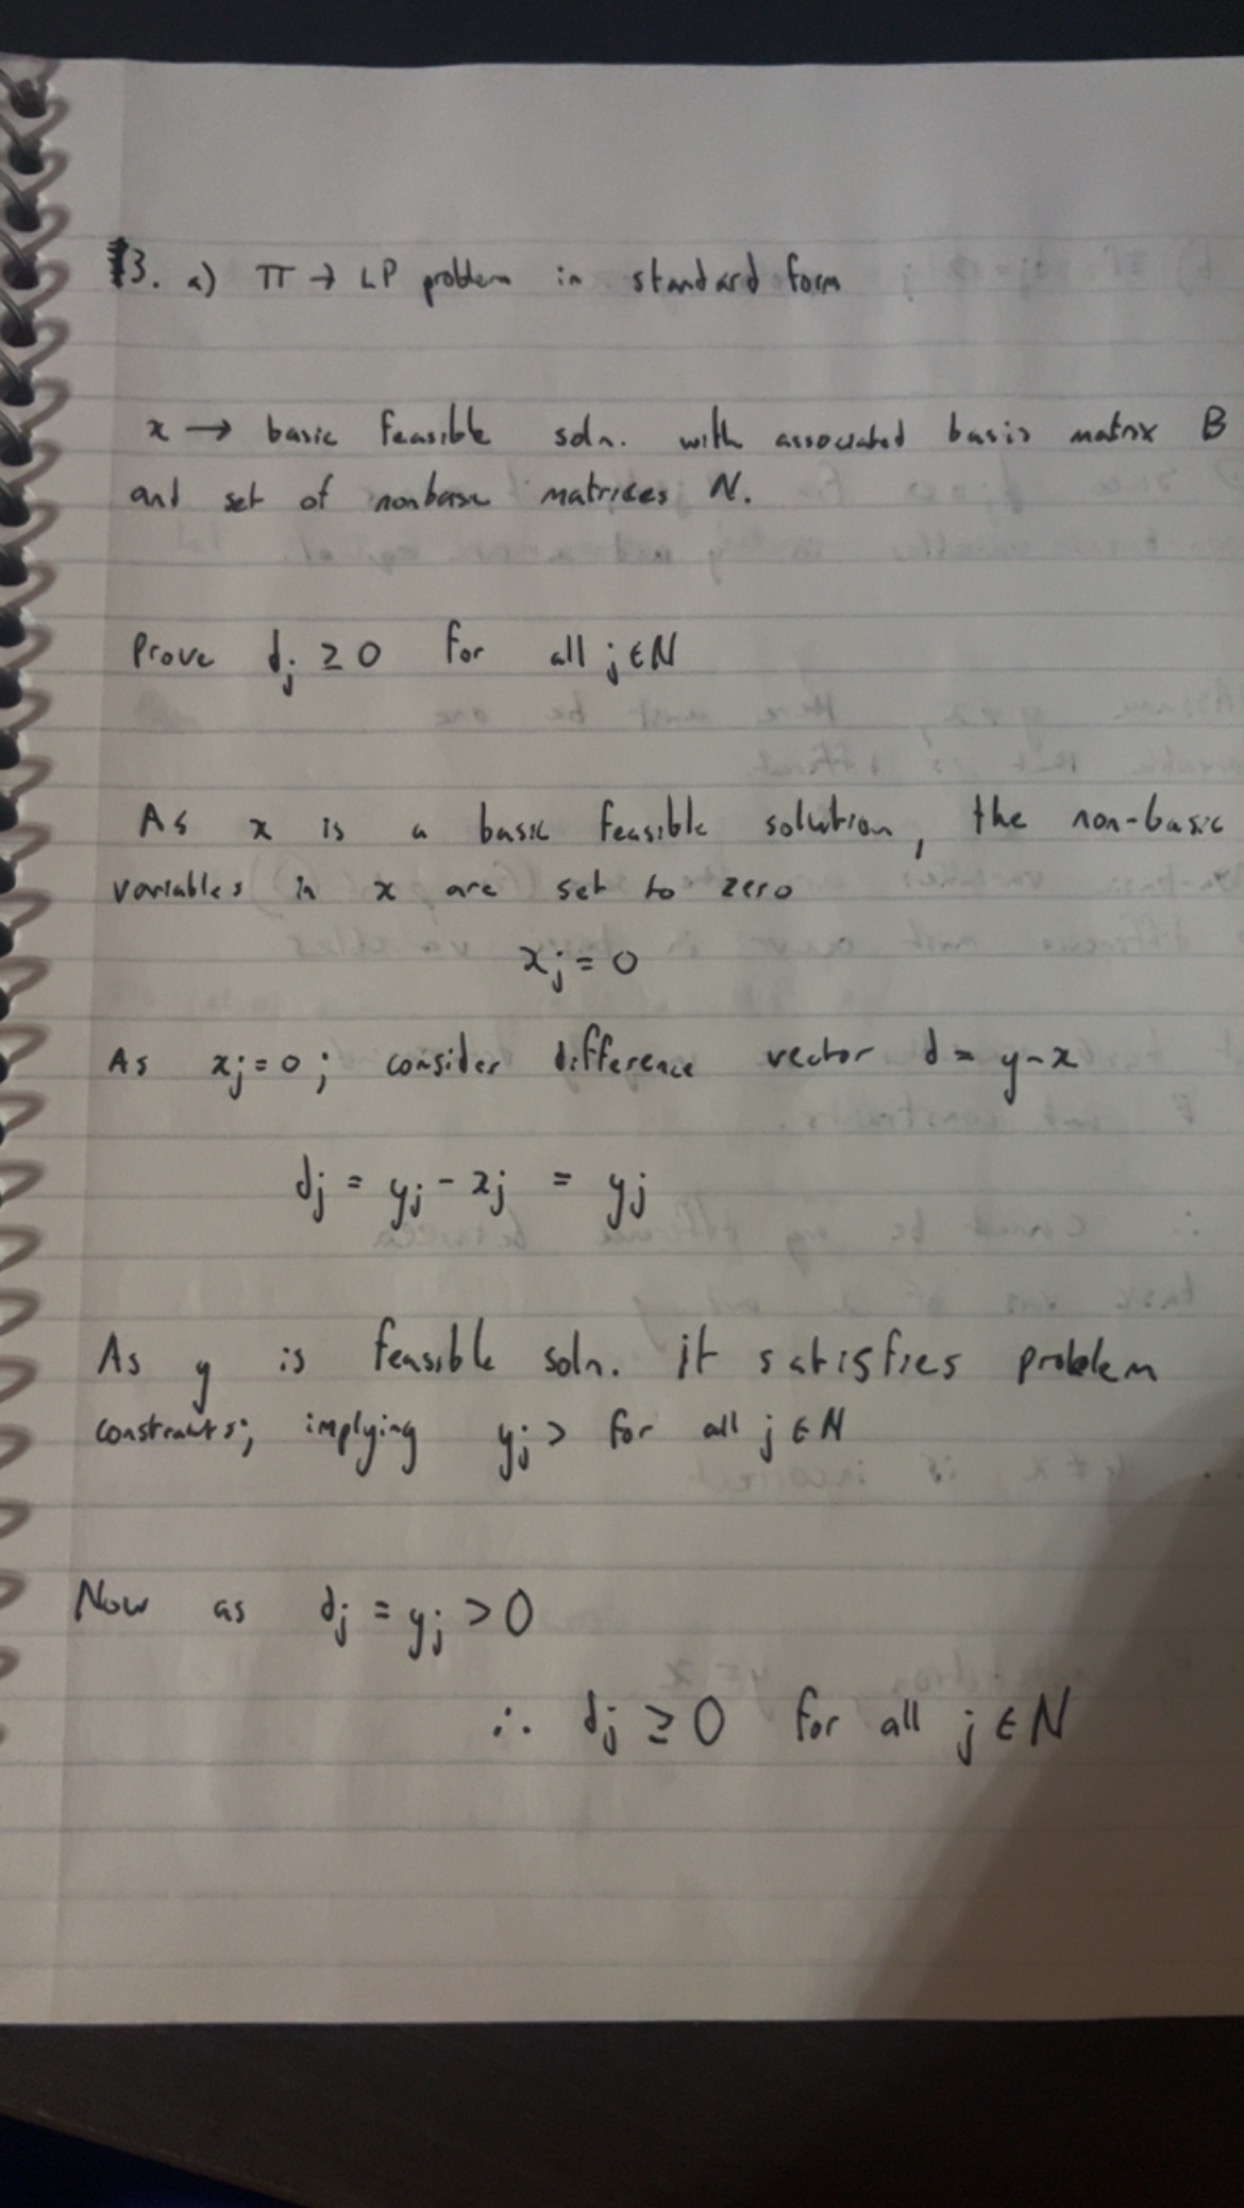 3. a) π → LP problem in standard form
x → basic feasible soln. with associated basis matrix B
and set of nonbasic matrices N.
Prove dj ≥ 0 for all j ∈ N
As x is a basic feasible solution, the non-basic
variables in x are set to zero
xj = 0
As xj = 0 ; consider difference vector d = y - x
dj = yj - xj = yj
As y is feasible soln. it satisfies problem
constraints; implying yj > for all j ∈ N
Now as dj = yj > 0
∴ dj ≥ 0 for all j ∈ N